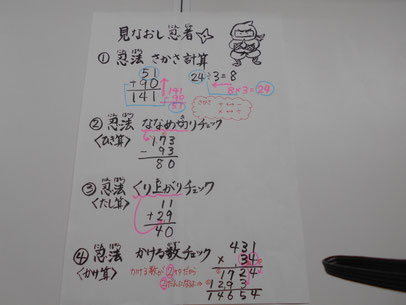 見なおし忍者
① 忍法 さかさ計算
51
+90
141
141
-90
51
24÷3=8
8×3=24
さかさ
② 忍法 ななめ切りチェック
〈ひき算〉
173
-93
80
③ 忍法 くり上がりチェック
〈たし算〉
11
+29
40
④ 忍法 かける数チェック
〈かけ算〉
かける数が②けただから
②だんになるよ
431
×34
1724
1293
14654